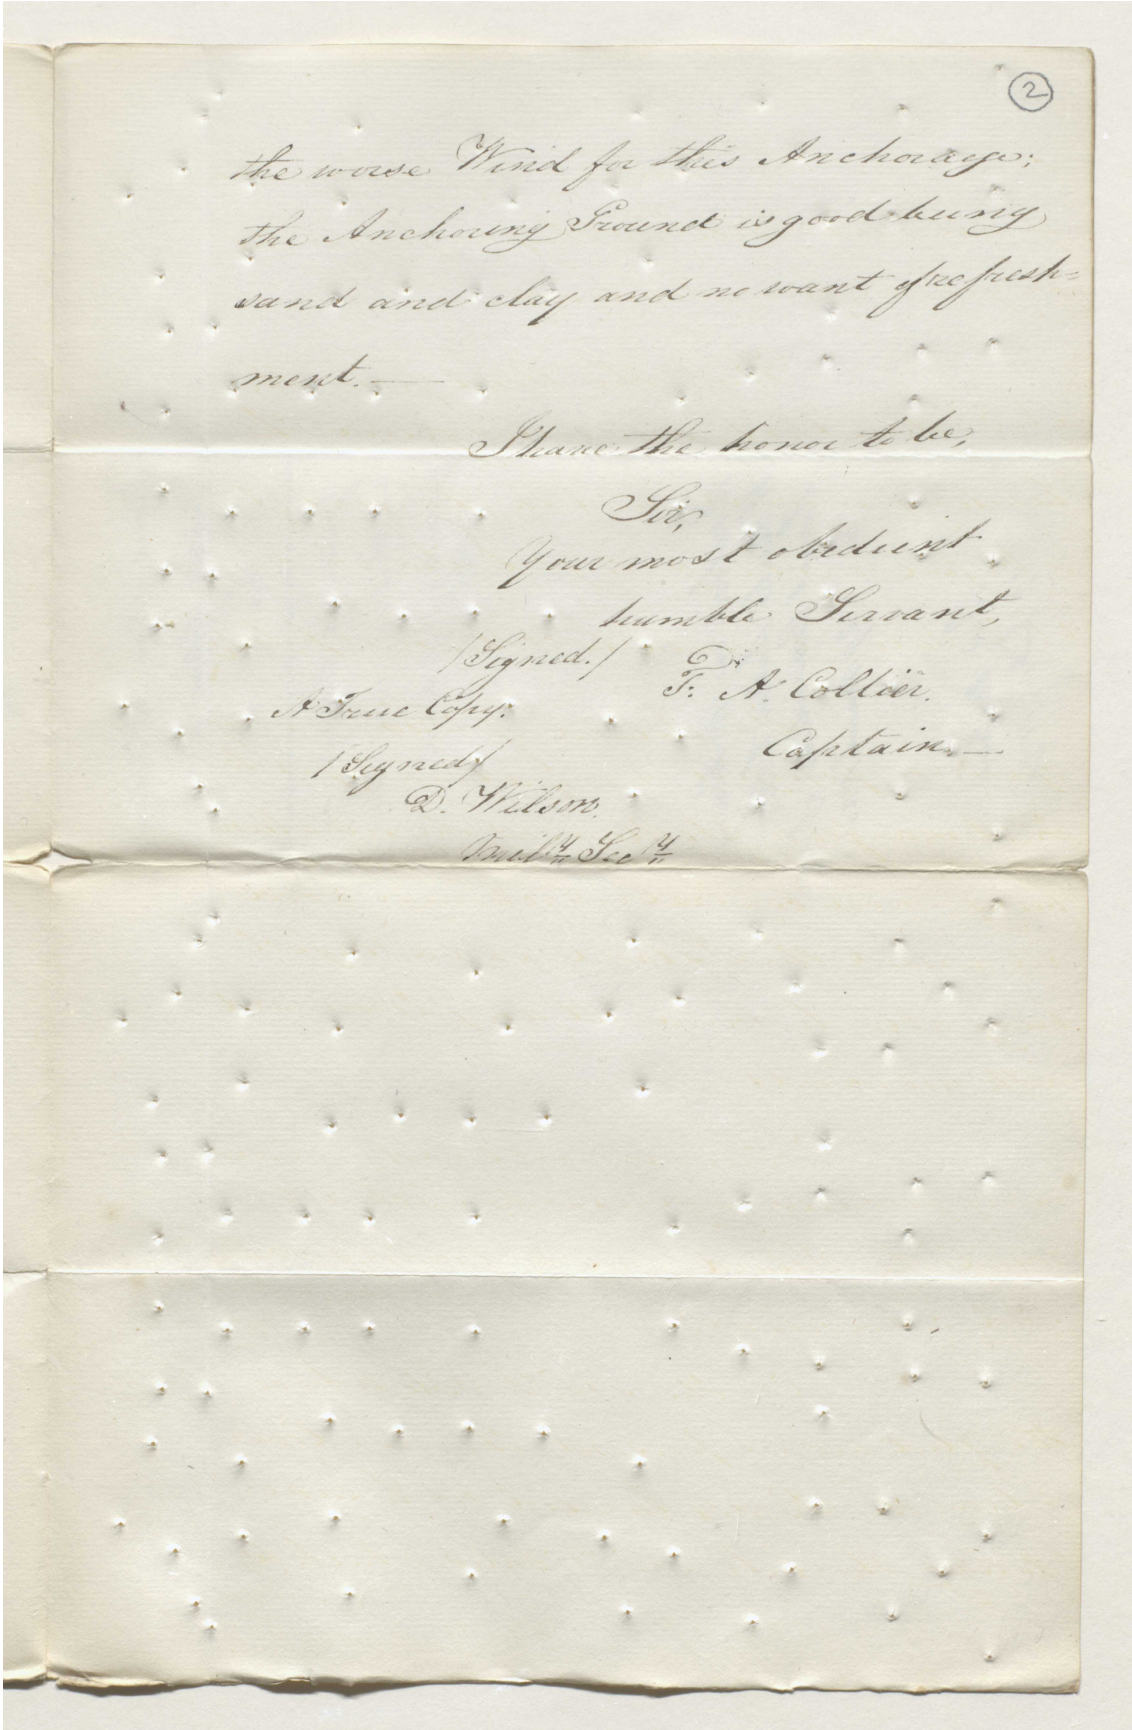 2
the worse Wind for this Anchorage;
the Anchoring Ground is good being
sand and clay and no want of refresh=
ment.—
I have the honor to be,
Sir,
Your most obedient
humble Servant,
/Signed./ F. A. Collier.
A True Copy. Captain.—
/Signed/
D. Wilson.
Mily Secy